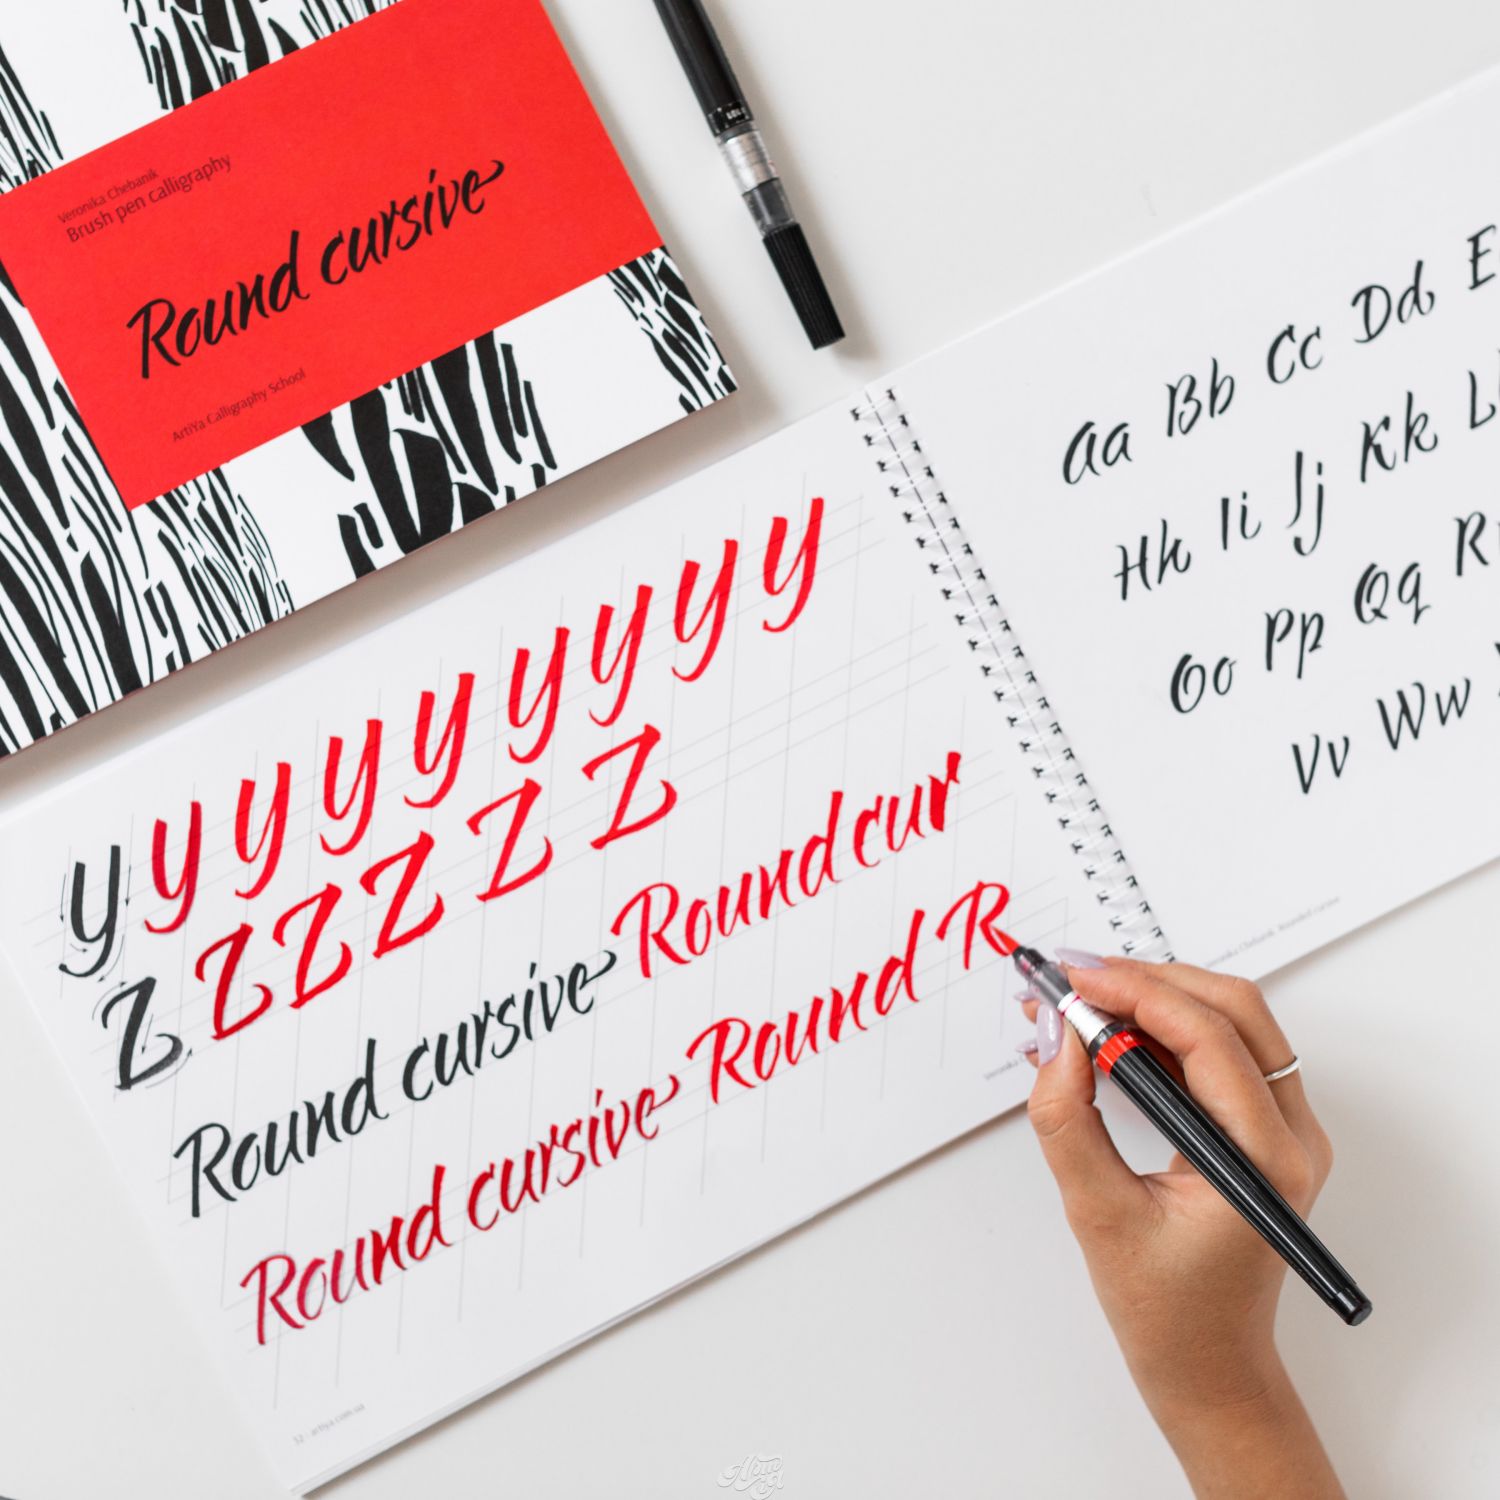 Veronika Chebanik
Brush pen calligraphy
Round cursive
ArtiYa Calligraphy School
y y y y y y y y y
Z Z Z Z Z Z
Round cursive Round cur
Round cursive Round R
52 · artiya.com.ua
Aa Bb Cc Dd E
Hh Ii Jj Kk L
Oo Pp Qq R
Vv Ww